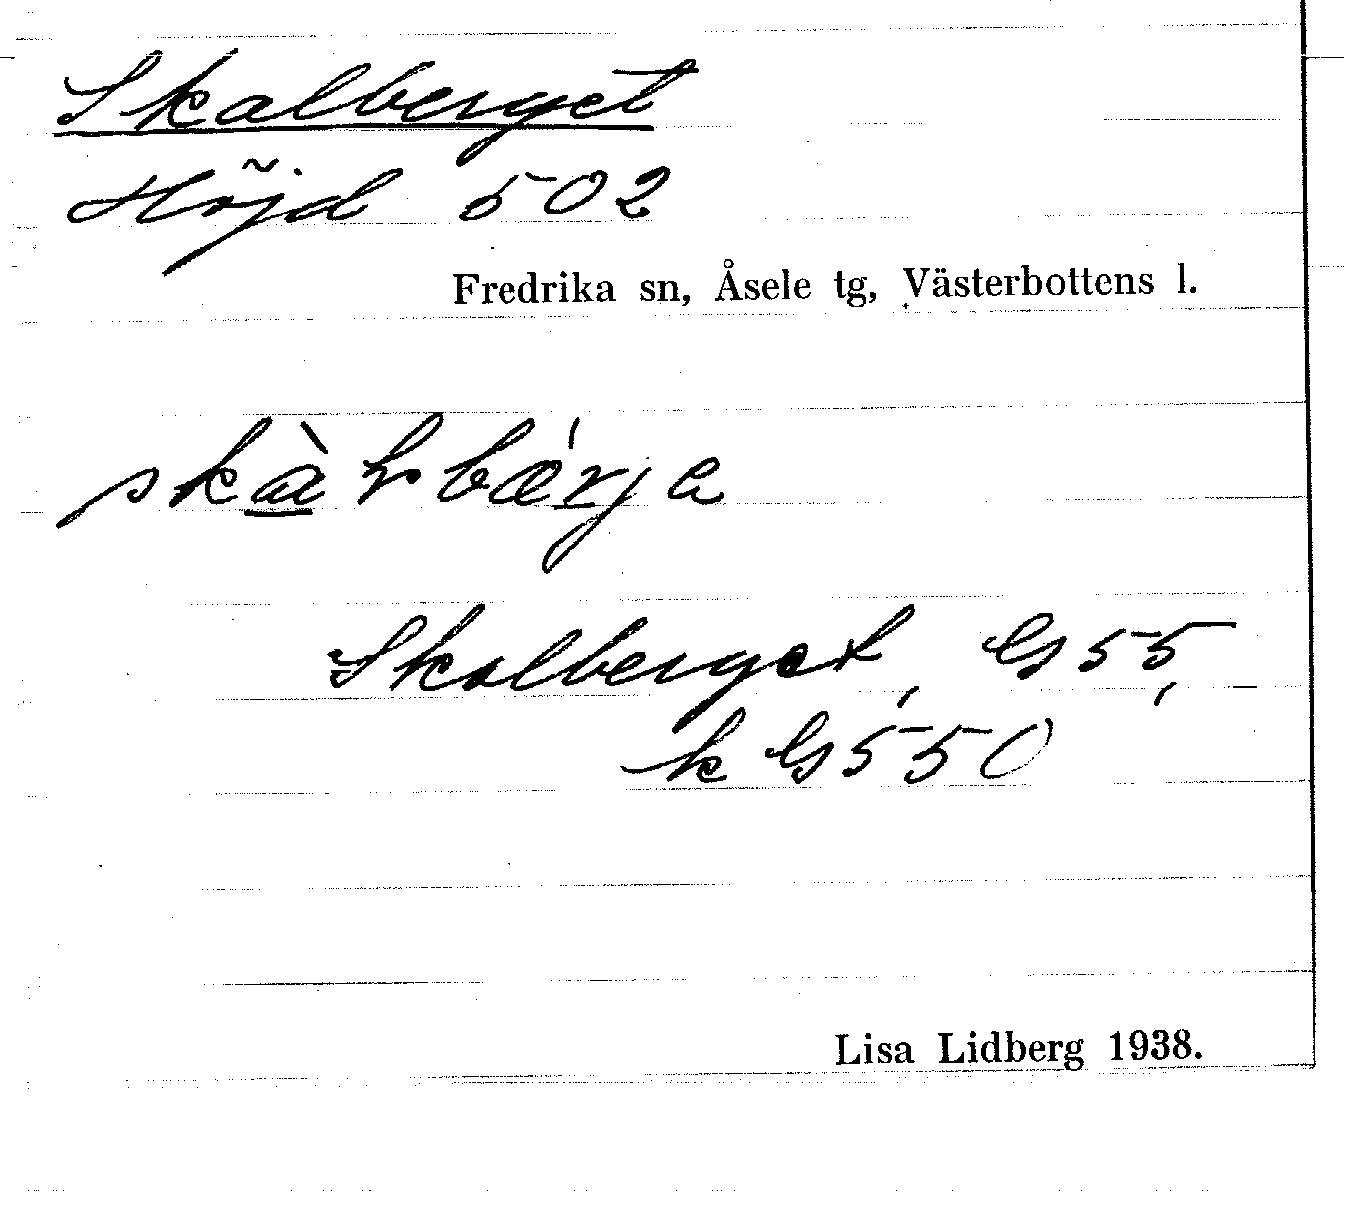 Skalberget
Höjd 502
Fredrika sn, Åsele tg, Västerbottens l.
Skalberget, GS 55,
k GS 550
Lisa Lidberg 1938.